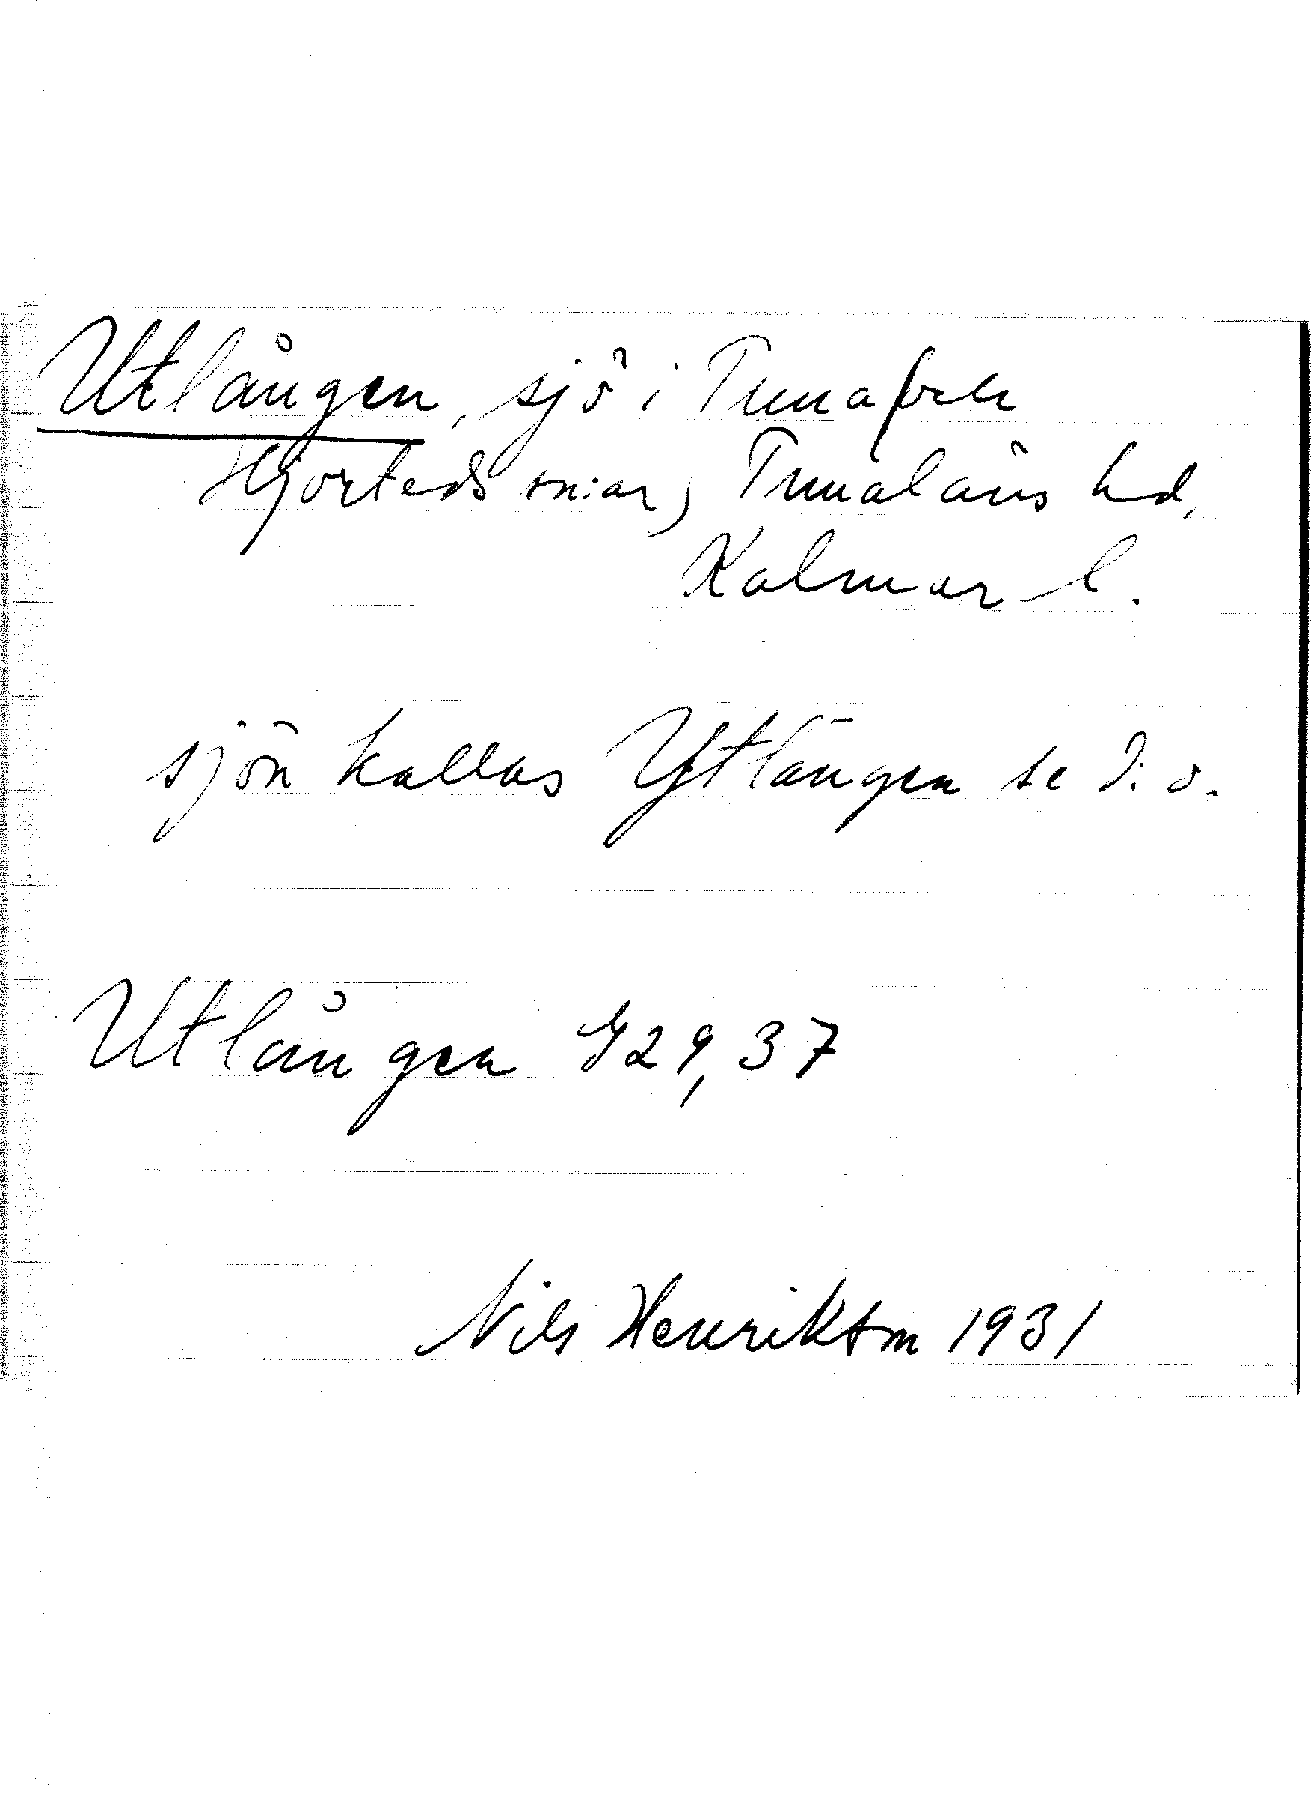 Utlången, sjö i Tuna och
Hjorteds sn:ar, Tunaläns hd,
Kalmar l.
sjön kallas Ytlången se d. o.
Utlången G29,37
Nils Henrikson 1931